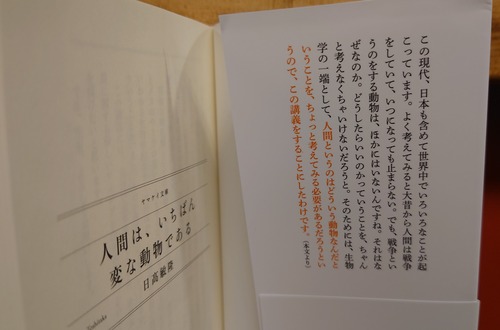 この現代、日本も含めて世界中でいろいろなことが起
こっています。よく考えてみると大昔から人間は戦争
をしていて、いつになっても止まらない。でも、戦争とい
うのをする動物は、ほかにはいないんですね。それはな
ぜなのか。どうしたらいいのかっていうことを、ちゃん
と考えなくちゃいけないだろうと。そのためには、生物
学の一端として、人間というのはどういう動物なんだと
いうことを、ちょっと考えてみる必要があるだろうとい
うので、この講義をすることにしたわけです。（本文より）
ヤマケイ文庫
人間は、いちばん
変な動物である
日高敏隆